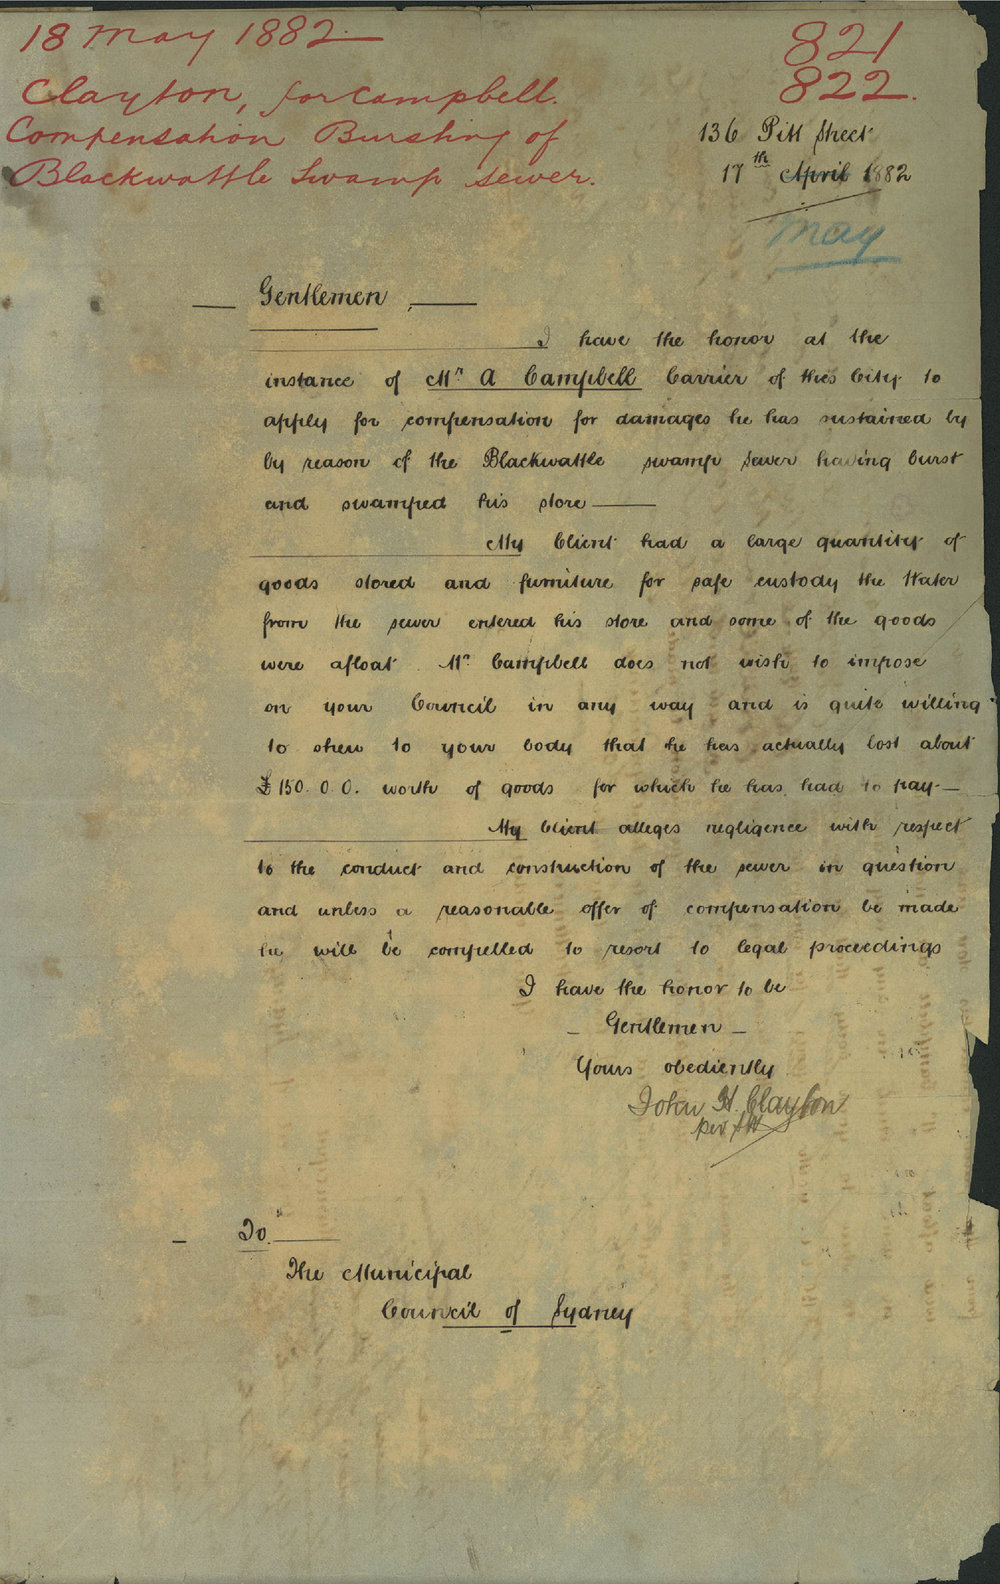 18 May 1882.
Clayton, for Campbell.
Compensation Bursting of
Blackwattle Swamp Sewer.
821
822.
136 Pitt Street
17th April 1882
May
Gentlemen,
I have the honor at the
instance of Mr A Campbell Carrier of this City to
apply for compensation for damages he has sustained by
by reason of the Blackwattle swamp Sewer having burst
and swamped his store
My Client had a large quantity of
goods stored and furniture for safe custody the Water
from the sewer entered his store and some of the goods
were afloat. Mr Campbell does not wish to impose
on your Council in any way and is quite willing
to shew to your body that he has actually lost about
£150.0.0. worth of goods for which he has had to pay—
My Client alleges negligence with respect
to the conduct and construction of the sewer in question
and unless a reasonable offer of compensation be made
he will be compelled to resort to legal proceedings
I have the honor to be
— Gentlemen —
Yours obediently
John H. Clayton
per
To.
The Municipal
Council of Sydney